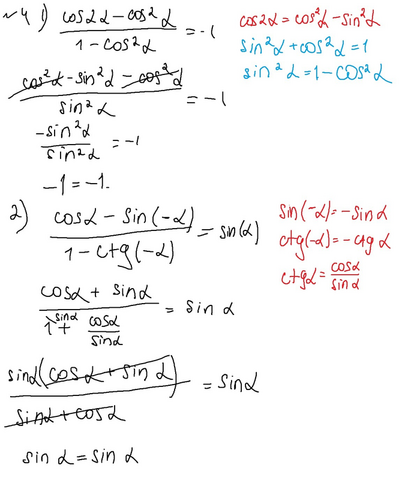 №4 1) (cos2α - cos²α)/(1 - cos²α) = -1
cos2α = cos²α - sin²α
sin²α + cos²α = 1
sin²α = 1 - cos²α
(cos²α - sin²α - cos²α)/(sin²α) = -1
(-sin²α)/(sin²α) = -1
-1 = -1.
2) (cosα - sin(-α))/(1 - ctg(-α)) = sin(α)
sin(-α) = -sinα
ctg(-α) = -ctgα
ctgα = cosα/sinα
(cosα + sinα)/(1^sinα + cosα/sinα) = sinα
(sinα(cosα + sinα))/(sinα + cosα) = sinα
sinα = sinα